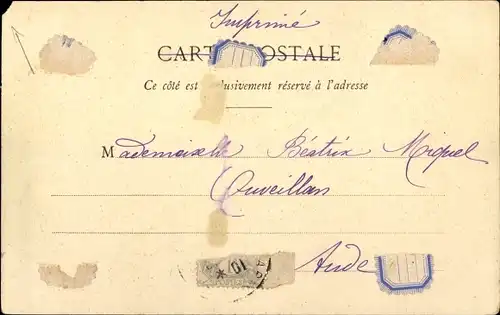 Imprimé
CARTE POSTALE
Ce côté est exclusivement réservé à l'adresse
Mademoiselle Béatrix Miquel
Ouveillan
Aude
10